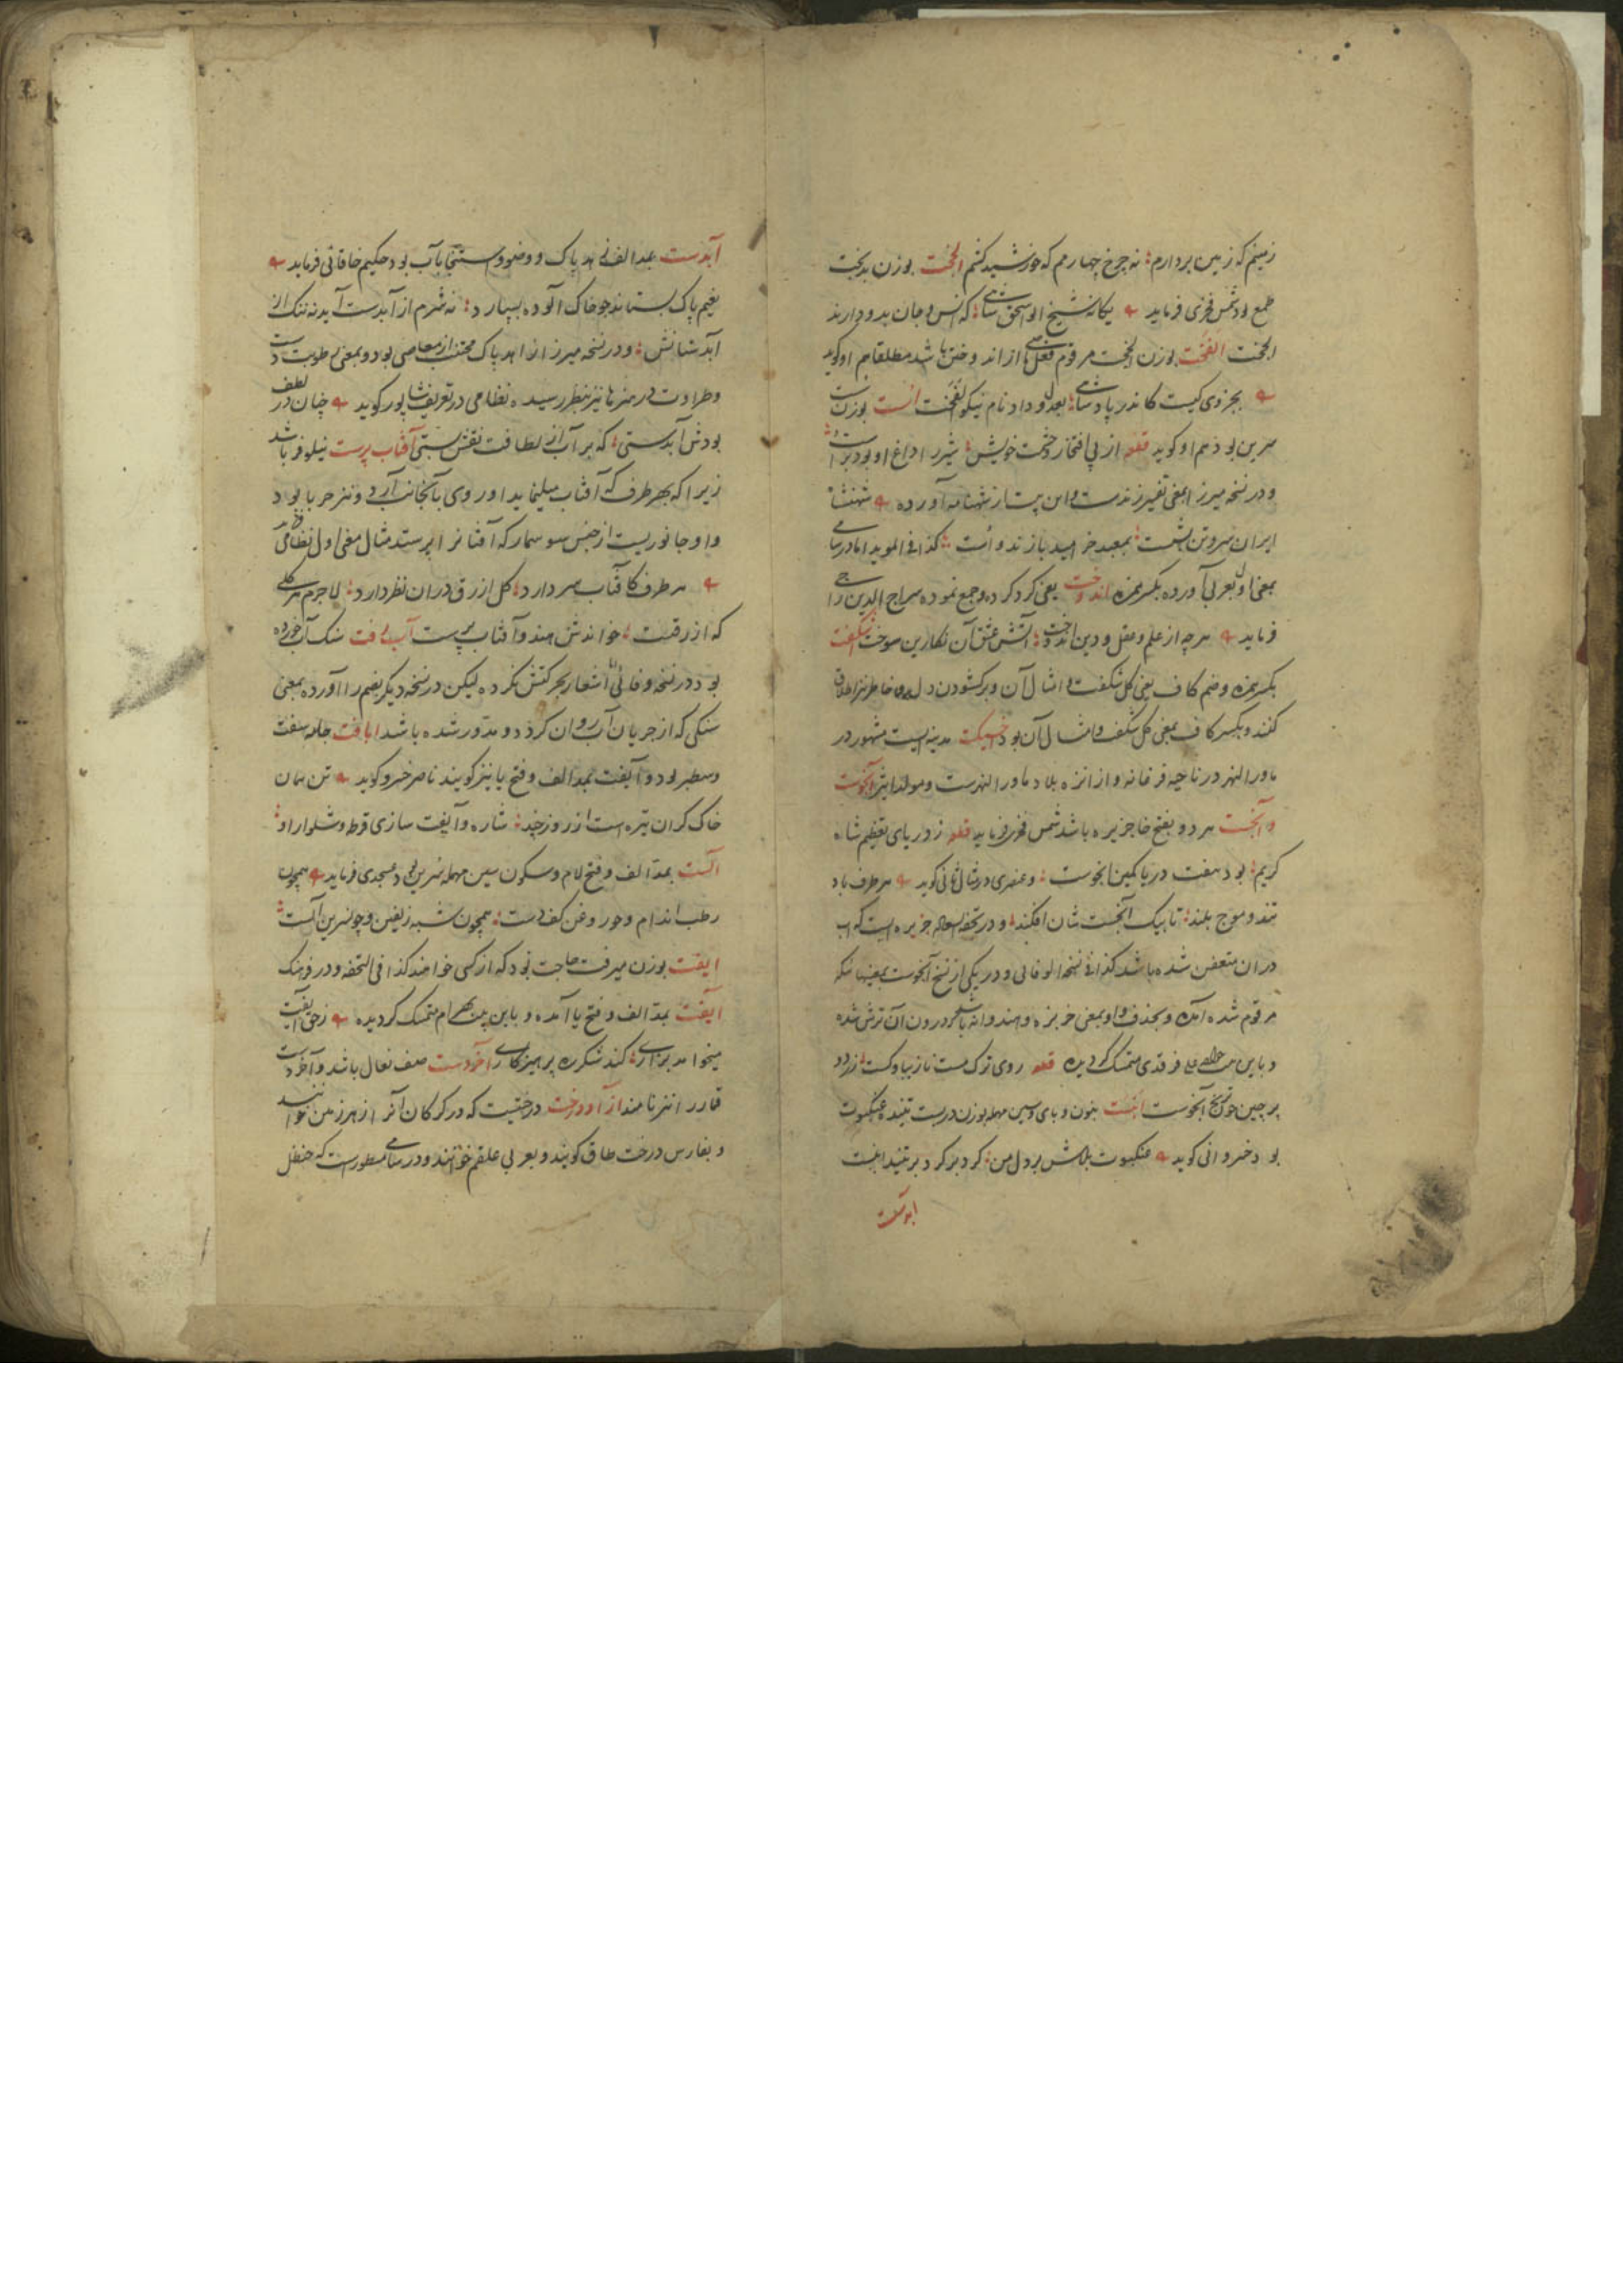 زمینم که زمین بردارم نه چرخ چهارمم که خورشید کشم الجخت بوزن بدبخت
طمع بود شمس فخری فرماید یکانه شیخ ابو اسحق شاهی که انس و جان بدو دارند
الجخت الفخت بوزن الجخت مرقوم فعل ماضی از اند وختن باشد مطلقا هم او کوید
بجز وی کیست کاندر پادشاهی بعدل و داد نام نیکو الفخت انست بوزن
سرین بود هم او کوید قطعه از پی افتخار خویش شیر را داغ او بود بر
و در نسخه میرزا بمعنی تفسیر زندست و این بیت از شهنامه آورده شهنشاه
ایران سر و تن بشست بمعبد خرامید با زند و است کذا فی الموید اما در سامی
بمعنی اول بعربی آورده بکسر همزه اندوخت یعنی کرد کرده و جمع نموده سراج الدین راجی
فرماید هرچه از علم و عقل و دین اندوخت آتش عشق آن نکارین سوخت اشکفت
بکسر همزه و ضم کاف یعنی کل شکفت و امثال آن و بر کشودن دل و خاطر نیز اطلاق
کنند و بکسر کاف بمعنی کل شکفت و امثال آن بود اخسیکت مدینه ایست مشهور در
ماورالنهر در ناحیه فرغانه و از انزه بلاد ماورالنهرست و مولد اثیر آبخوست
و آبخست هر دو بفتح خا جزیره باشد شمس فخری فرماید قطعه ز دریای تعظیم شاه
کریم بود هفت دریا کمین ابخوست و عنصری در مثال ثانی کوید هر طرف باد
تند و موج بلند تا بیک آبخست شان افکند و در تحفه السعاده جزیره ایست که آب
دران متعفن شده باشد کذا فی نسخه الوفائی و در یکی از نسخ آبخوست بمعنی آنکه
مرقوم شده آمده و بحذف واو بمعنی خربزه و هندوانه باشد که درون آن ترش شده
و باین بیت فرقدی متمسک کردیده قطعه روی ترک مست نازیبا وکست زرد و
پرچین چون ترنج آبخوست انبست بنون و بای و سین مهمله بوزن دربست تننده عنکبوت
بود خسروانی کوید عنکبوت بلاش بر دل من کرد بر کرد بر تنید انبست
ابوتفت
آبدست بمد الف زاهد پاک و وضو و استنجا بآب بود حکیم خاقانی فرماید
یغیم پاک بستاند جو خاک آلوده بسپارد نه شرم از آبدست آید نه ننک از
آبدستانش و در نسخه میرزا زاهد پاک مجتنب از معاصی بود و بمعنی رطوبت دست
و طراوت در هنرها نیز بنظر رسیده نظامی در تعریف شاپور کوید چنان در لطف
بودش آبدستی که بر آب از لطافت نقش بستی آفتاب پرست نیلوفر باشد
زیرا که بهر طرف که آفتاب میل نماید او روی بآنجانب آرد و نیز حربا بود
و او جانوریست از جنس سوسمار که آفتاب را پرستد مثال معنی اول نظامی
هر طرف کافتاب سر دارد کل ازرق دران نظر دارد لاجرم هر کلی
که ازرقست خوانندش هندو آفتاب پرست آب رفت سنک آب خورده
بود در نسخه وفائی اشعار بحرکتش نکرده لیکن در نسخه دیکر بضم را آورده بمعنی
سنکی که از جریان آب روان کرد و مدور شده باشد ابافت جامه سفت
و سطبر بود و آیفت بمد الف و فتح با نیز کویند ناصر خسرو کوید تن همان
خاک کران تیره است از روز چند شاره و آبفت سازی قرط و شلوار او
الست بمد الف و فتح لام و سکون سین مهمله سرین بود عسجدی فرماید همچون
رطب اندام و چو روغن کف دست همچون شبه زلفین و چو نسرین آلست
ایفت بوزن میرفت حاجت بود که از کسی خواهند کذا فی التحفه و در فرهنک
آیفت بمد الف و فتح یا آمده و باین بیت بهرام متمسک کردیده زحق آیفت
میخواهد بزاری کند شکر به پرهیزکاری آخردست صف نعال باشد و آخر دست
قمار را نیز نامند ازآددرخت درختیست که در کرکان آنرا زهر زمین خوانند
و بفارس درخت طاق کویند و بعربی علقم خوانند و در سامی مسطورست که حنظل